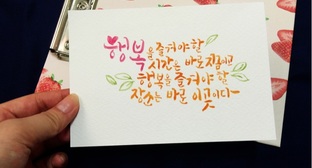 행복을 즐겨야 할
시간은 바로 지금이고
행복을 즐겨야 할
장소는 바로 이곳이다